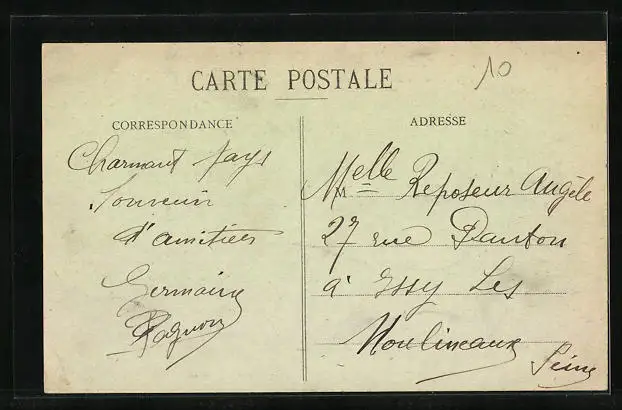 10
CARTE POSTALE
CORRESPONDANCE
Charmant pays
Souvenir
d'amitiés
Germaine
Ragnon
ADRESSE
M Melle Reposeur Angèle
27 rue Danton
à Issy Les
Moulineaux
Seine